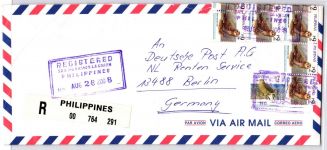 REGISTERED
PHILIPPINES
AUG 28
An
Deutsche Post A.G
NL Renten Service
13488 Berlin
Germany
R
PHILIPPINES
00 764 291
PAR AVION VIA AIR MAIL CORREO AEREO